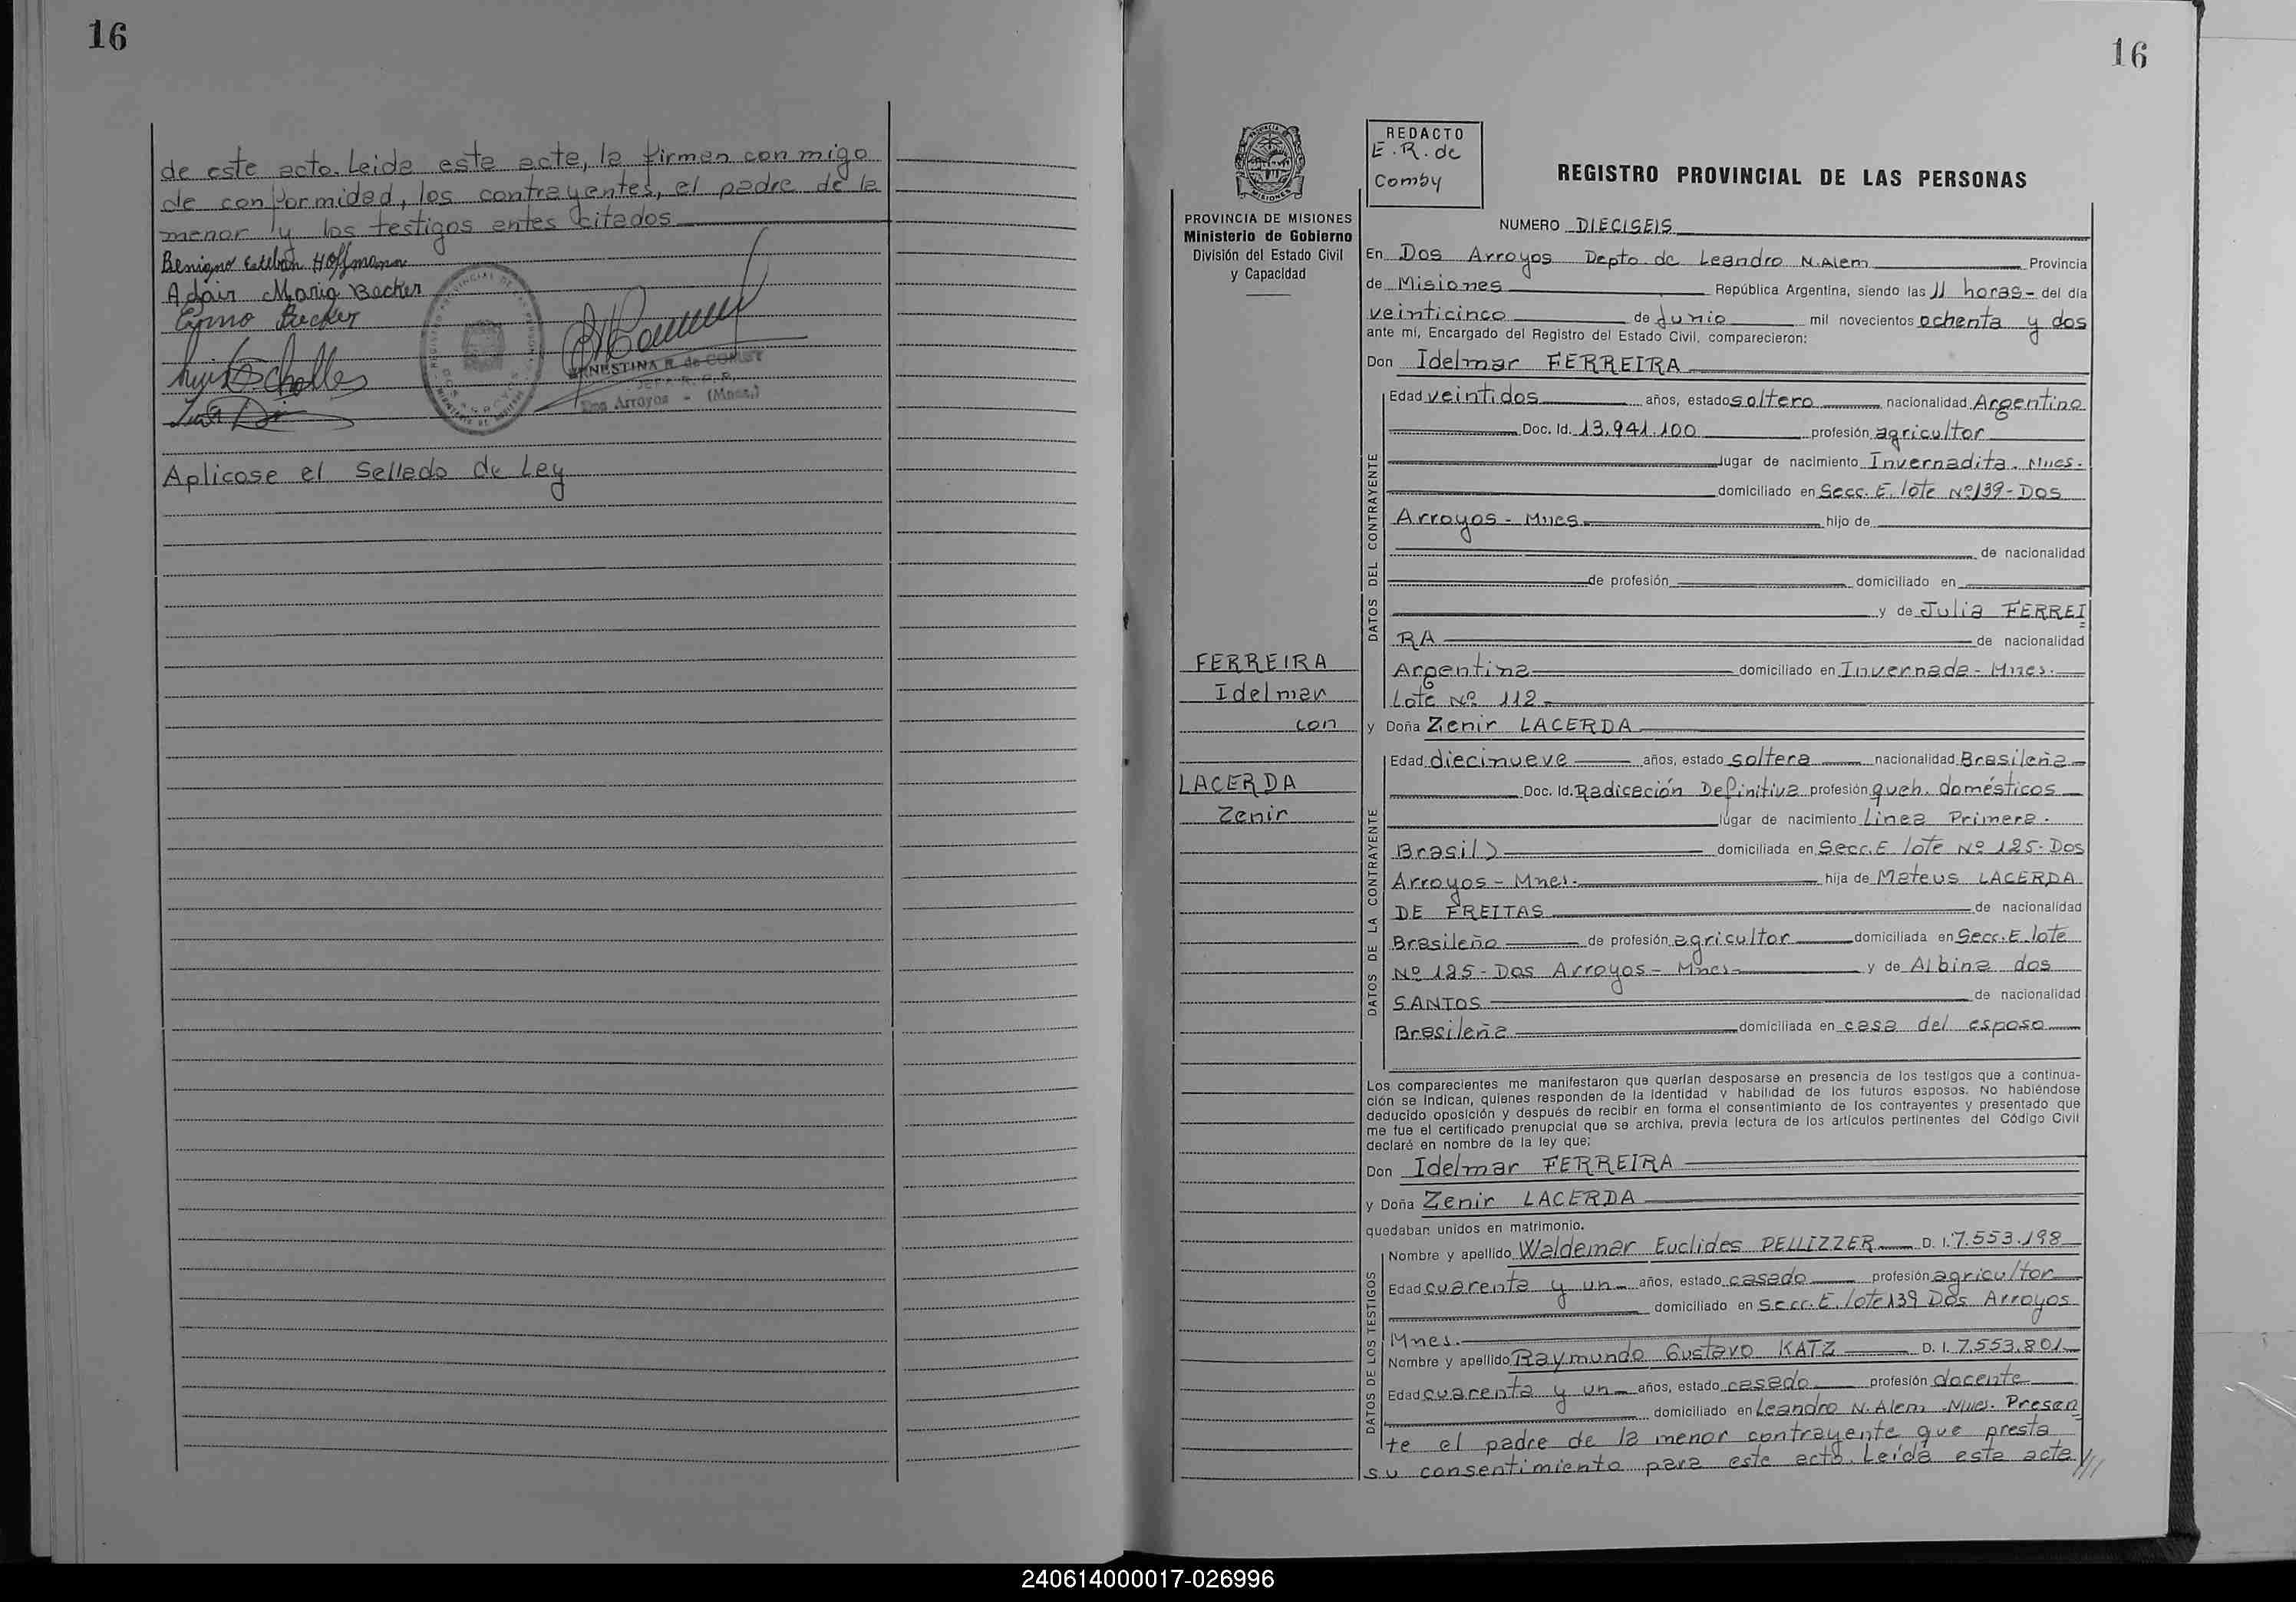 16
de este acto. Leida esta acta, la firman conmigo
de conformidad, los contrayentes, el padre de la
menor y los testigos antes citados
Benigno Esteban Hoffmann
Adair Maria Becker
Becker
ERNESTINA R. de COMBY
Dos Arroyos - (Mnes.)
Aplicose el Sellado de Ley
16
REDACTO
E. R. de
Comby
REGISTRO PROVINCIAL DE LAS PERSONAS
PROVINCIA DE MISIONES
Ministerio de Gobierno
División del Estado Civil
y Capacidad
FERREIRA
Idelmar
con
LACERDA
Zenir
NUMERO DIECISEIS
En Dos Arroyos Depto. de Leandro N. Alem Provincia
de Misiones República Argentina, siendo las 11 horas - del día
veinticinco de Junio mil novecientos ochenta y dos
ante mí, Encargado del Registro del Estado Civil, comparecieron:
Don Idelmar FERREIRA
DATOS DEL CONTRAYENTE
Edad veintidos años, estado soltero nacionalidad Argentino
Doc. Id. 13.941.100 profesión agricultor
lugar de nacimiento Invernadita. Mnes.
domiciliado en Secc. E. lote Nº 139 - Dos
Arroyos - Mnes. hijo de
de nacionalidad
de profesión domiciliado en
y de Julia FERREI
RA de nacionalidad
Argentina domiciliado en Invernada - Mnes.
Lote Nº 112
y Doña Zenir LACERDA
DATOS DE LA CONTRAYENTE
Edad diecinueve años, estado soltera nacionalidad Brasileña
Doc. Id. Radicación Definitiva profesión queh. domésticos
lugar de nacimiento Linea Primera.
Brasil) domiciliada en Secc. E lote Nº 125 - Dos
Arroyos - Mnes. hija de Mateus LACERDA
DE FREITAS de nacionalidad
Brasileño de profesión agricultor domiciliada en Secc. E. lote
Nº 125 - Dos Arroyos - Mnes. y de Albina dos
SANTOS de nacionalidad
Brasileña domiciliada en casa del esposo
Los comparecientes me manifestaron que querían desposarse en presencia de los testigos que a continua-
ción se indican, quienes responden de la identidad y habilidad de los futuros esposos. No habiéndose
deducido oposición y después de recibir en forma el consentimiento de los contrayentes y presentado que
me fue el certificado prenupcial que se archiva, previa lectura de los artículos pertinentes del Código Civil
declaré en nombre de la ley que:
Don Idelmar FERREIRA
y Doña Zenir LACERDA
quedaban unidos en matrimonio.
DATOS DE LOS TESTIGOS
Nombre y apellido Waldemar Euclides PELLIZZER D. I. 7.553.198
Edad cuarenta y un años, estado casado profesión agricultor
domiciliado en Secc. E. lote 139 Dos Arroyos
Mnes.
Nombre y apellido Raymundo Gustavo KATZ D. I. 7.553.801
Edad cuarenta y un años, estado casado profesión docente
domiciliado en Leandro N. Alem Mnes. Presen
te el padre de la menor contrayente que presta
su consentimiento para este acto. Leida esta acta ///
240614000017-026996